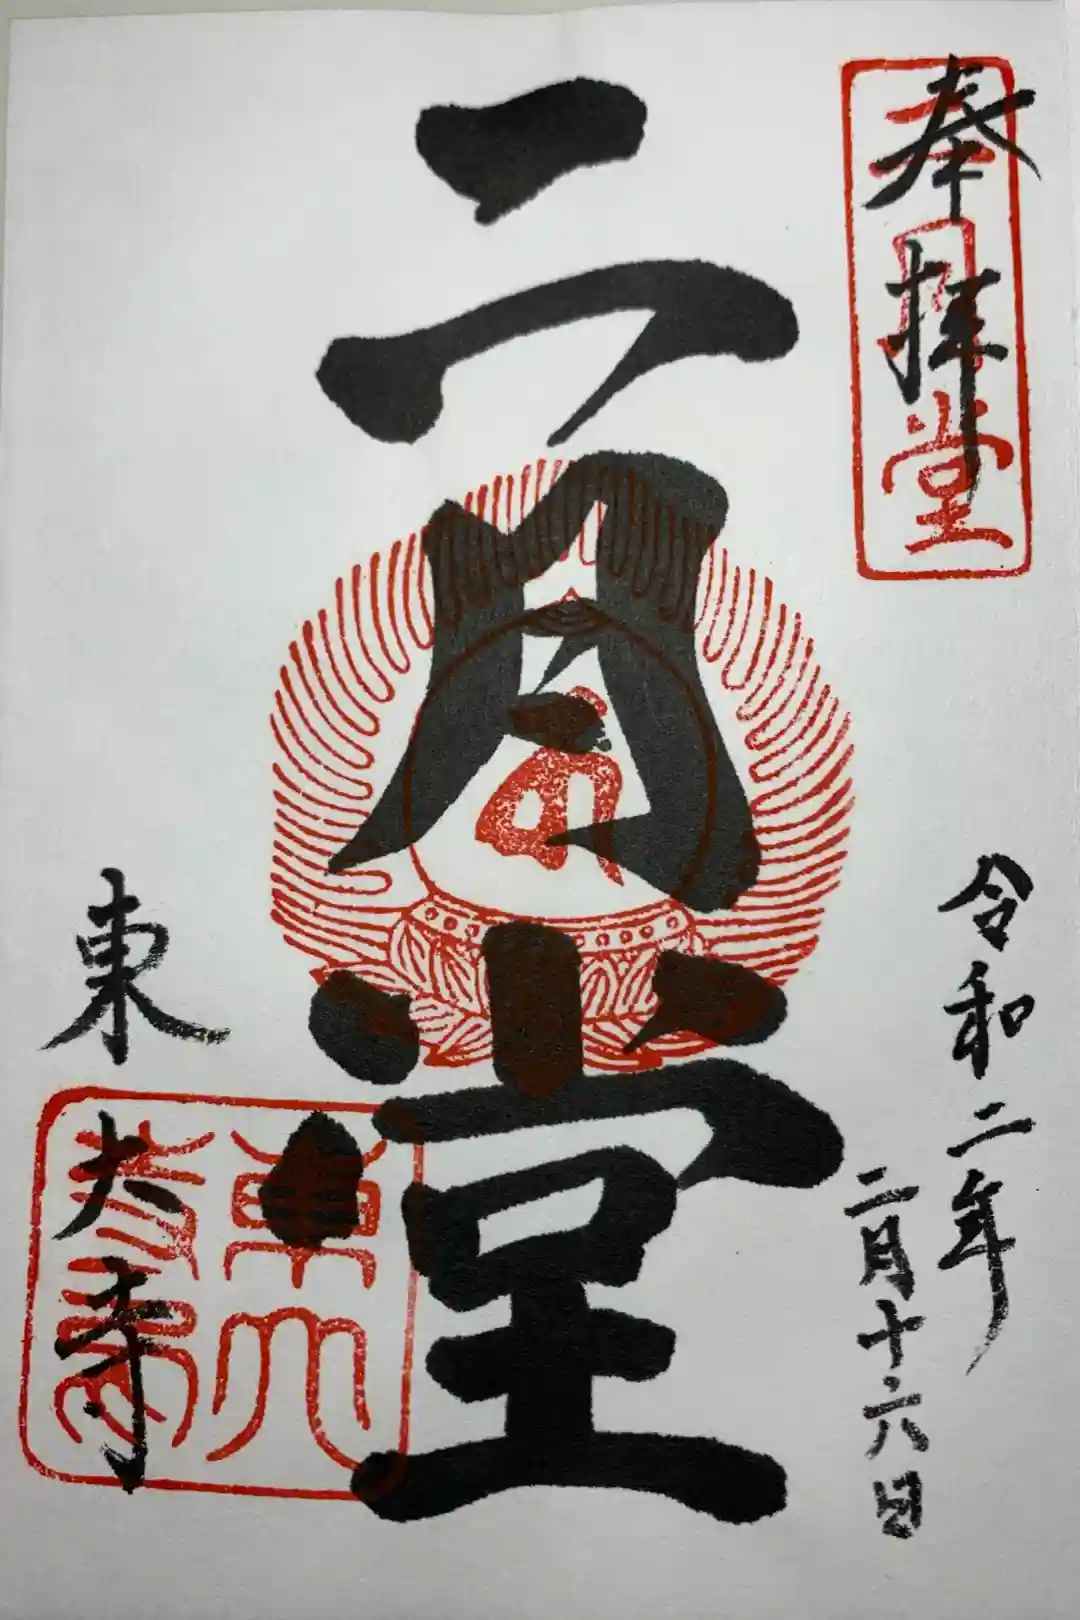 奉拝
二月堂
令和二年
二月十六日
二月堂
東大寺